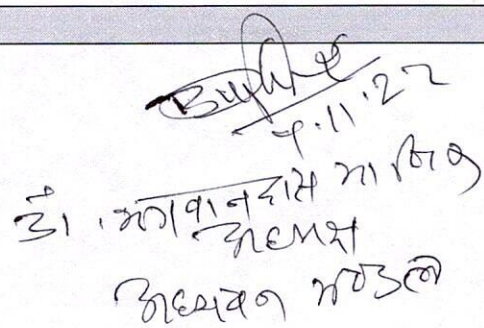 9.11.22
डॉ. भगवानदास मानिक
अध्यक्ष
अध्ययन मण्डल